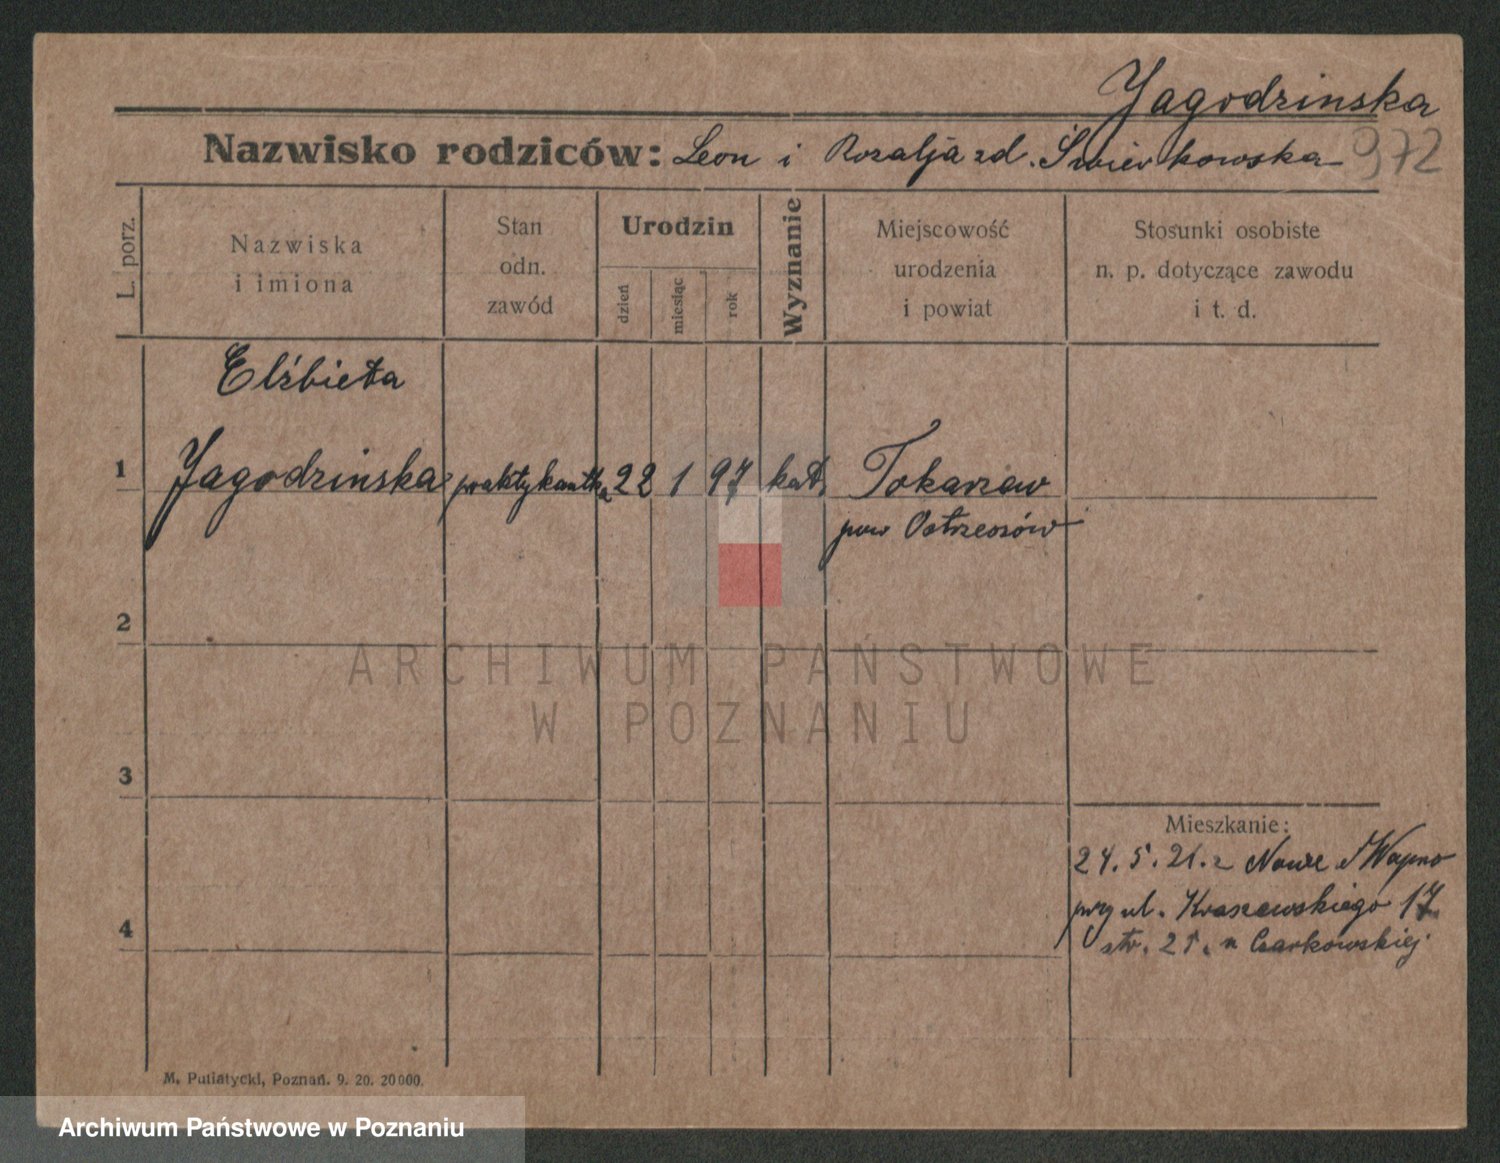 Jagodzinska
Nazwisko rodziców: Leon i Rozalja zd. Świerkowska 972
L. porz.
Nazwiska
i imiona
Stan
odn.
zawód
Urodzin
dzień
miesiąc
rok
Wyznanie
Miejscowość
urodzenia
i powiat
Stosunki osobiste
n. p. dotyczące zawodu
i t. d.
Elżbieta
1 Jagodzińska praktykantka 22 1 97 kat. Tokarzew
pow Ostrzeszów
2
ARCHIWUM PAŃSTWOWE
W POZNANIU
3
Mieszkanie:
24. 5. 21. z Wapno
przy ul. Kraszewskiego 17
4
str. 21. u Czarkowskiej
M. Putiatycki, Poznań. 9. 20. 20000.
Archiwum Państwowe w Poznaniu